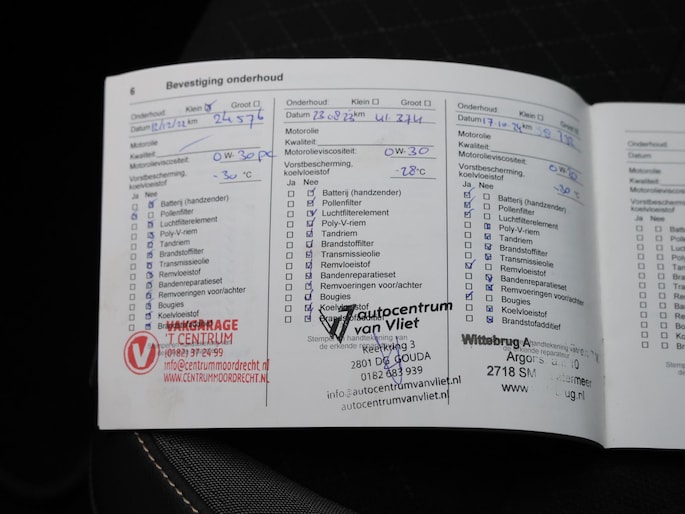 6 Bevestiging onderhoud
Onderhoud: Klein Groot
Datum 12/12/22 km 24576
Motorolie
Kwaliteit
Motorolieviscositeit: 0W-30
Vorstbescherming, koelvloeistof -30 °C
Ja Nee
Batterij (handzender)
Pollenfilter
Luchtfilterelement
Poly-V-riem
Tandriem
Brandstoffilter
Transmissieolie
Remvloeistof
Bandenreparatieset
Remvoeringen voor/achter
Bougies
Koelvloeistof
VAKGARAGE
'T CENTRUM
(0182) 37 24 99
info@centrummoordrecht.nl
WWW.CENTRUMMOORDRECHT.NL
Onderhoud: Klein Groot
Datum 23 08 23 km 41374
Motorolie
Kwaliteit:
Motorolieviscositeit: 0W-30
Vorstbescherming, koelvloeistof -28 °C
Ja Nee
Batterij (handzender)
Pollenfilter
Luchtfilterelement
Poly-V-riem
Tandriem
Brandstoffilter
Transmissieolie
Remvloeistof
Bandenreparatieset
Remvoeringen voor/achter
Bougies
Koelvloeistof
Brandstofadditief
autocentrum
van Vliet
Kerkweg 3
2801 DG GOUDA
0182 683 939
info@autocentrumvanvliet.nl
autocentrumvanvliet.nl
Onderhoud: Klein Groot
Datum 17.10.24 km
Motorolie
Kwaliteit:
Motorolieviscositeit: 0W
Vorstbescherming, koelvloeistof -30 °C
Ja Nee
Batterij (handzender)
Pollenfilter
Luchtfilterelement
Poly-V-riem
Tandriem
Brandstoffilter
Transmissieolie
Remvloeistof
Bandenreparatieset
Remvoeringen voor/achter
Bougies
Koelvloeistof
Brandstofadditief
Wittebrug
2718 SM
www
Onderhoud:
Datum
Motorolie
Kwaliteit:
Ja Nee